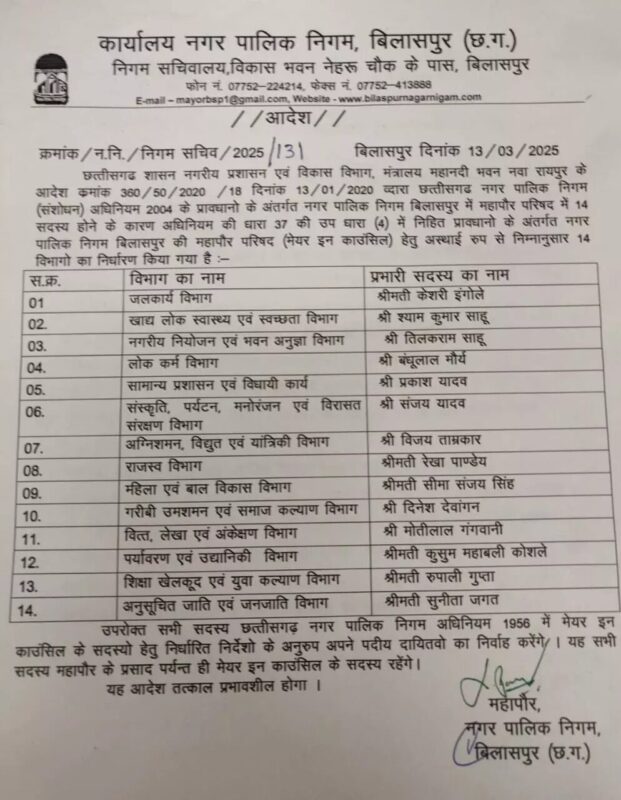 कार्यालय नगर पालिक निगम, बिलासपुर (छ.ग.)
निगम सचिवालय,विकास भवन नेहरू चौक के पास, बिलासपुर
फोन नं. 07752–224214, फेक्स नं. 07752–413888
E-mail – mayorbsp1@gmail.com, Website - www.bilaspurnagarnigam.com
//आदेश//
क्रमांक/न.नि./निगम सचिव/2025/131 बिलासपुर दिनांक 13/03/2025
छत्तीसगढ शासन नगरीय प्रशासन एवं विकास विभाग, मंत्रालय महानदी भवन नवा रायपुर के
आदेश कमांक 360/50/2020 /18 दिनांक 13/01/2020 व्दारा छत्तीसगढ नगर पालिक निगम
(संशोधन) अधिनियम 2004 के प्रावधानो के अंतर्गत नगर पालिक निगम बिलासपुर में महापौर परिषद में 14
सदस्य होने के कारण अधिनियम की धारा 37 की उप धारा (4) में निहित प्रावधानो के अंतर्गत नगर
पालिक निगम बिलासपुर की महापौर परिषद (मेयर इन काउंसिल) हेतु अस्थाई रुप से निम्नानुसार 14
विभागो का निर्धारण किया गया है :–
स.क्र. विभाग का नाम प्रभारी सदस्य का नाम
01 जलकार्य विभाग श्रीमती केशरी इंगोले
02. खाद्य लोक स्वास्थ्य एवं स्वच्छता विभाग श्री श्याम कुमार साहू
03. नगरीय नियोजन एवं भवन अनुज्ञा विभाग श्री तिलकराम साहू
04. लोक कर्म विभाग श्री बंधूलाल मौर्य
05. सामान्य प्रशासन एवं विधायी कार्य श्री प्रकाश यादव
06. संस्कृति, पर्यटन, मनोरंजन एवं विरासत श्री संजय यादव
संरक्षण विभाग
07. अग्निशमन, विद्युत एवं यांत्रिकी विभाग श्री विजय ताम्रकार
08. राजस्व विभाग श्रीमती रेखा पाण्डेय
09. महिला एवं बाल विकास विभाग श्रीमती सीमा संजय सिंह
10. गरीबी उमशमन एवं समाज कल्याण विभाग श्री दिनेश देवांगन
11. वित्त, लेखा एवं अंकेक्षण विभाग श्री मोतीलाल गंगवानी
12. पर्यावरण एवं उद्यानिकी विभाग श्रीमती कुसुम महाबली कोशले
13. शिक्षा खेलकूद एवं युवा कल्याण विभाग श्रीमती रुपाली गुप्ता
14. अनुसूचित जाति एवं जनजाति विभाग श्रीमती सुनीता जगत
उपरोक्त सभी सदस्य छत्तीसगढ़ नगर पालिक निगम अधिनियम 1956 में मेयर इन
काउंसिल के सदस्यो हेतु निर्धारित निर्देशो के अनुरुप अपने पदीय दायितवो का निर्वाह करेंगे। यह सभी
सदस्य महापौर के प्रसाद पर्यन्त ही मेयर इन काउंसिल के सदस्य रहेंगे।
यह आदेश तत्काल प्रभावशील होगा ।
महापौर,
नगर पालिक निगम,
बिलासपुर (छ.ग.)